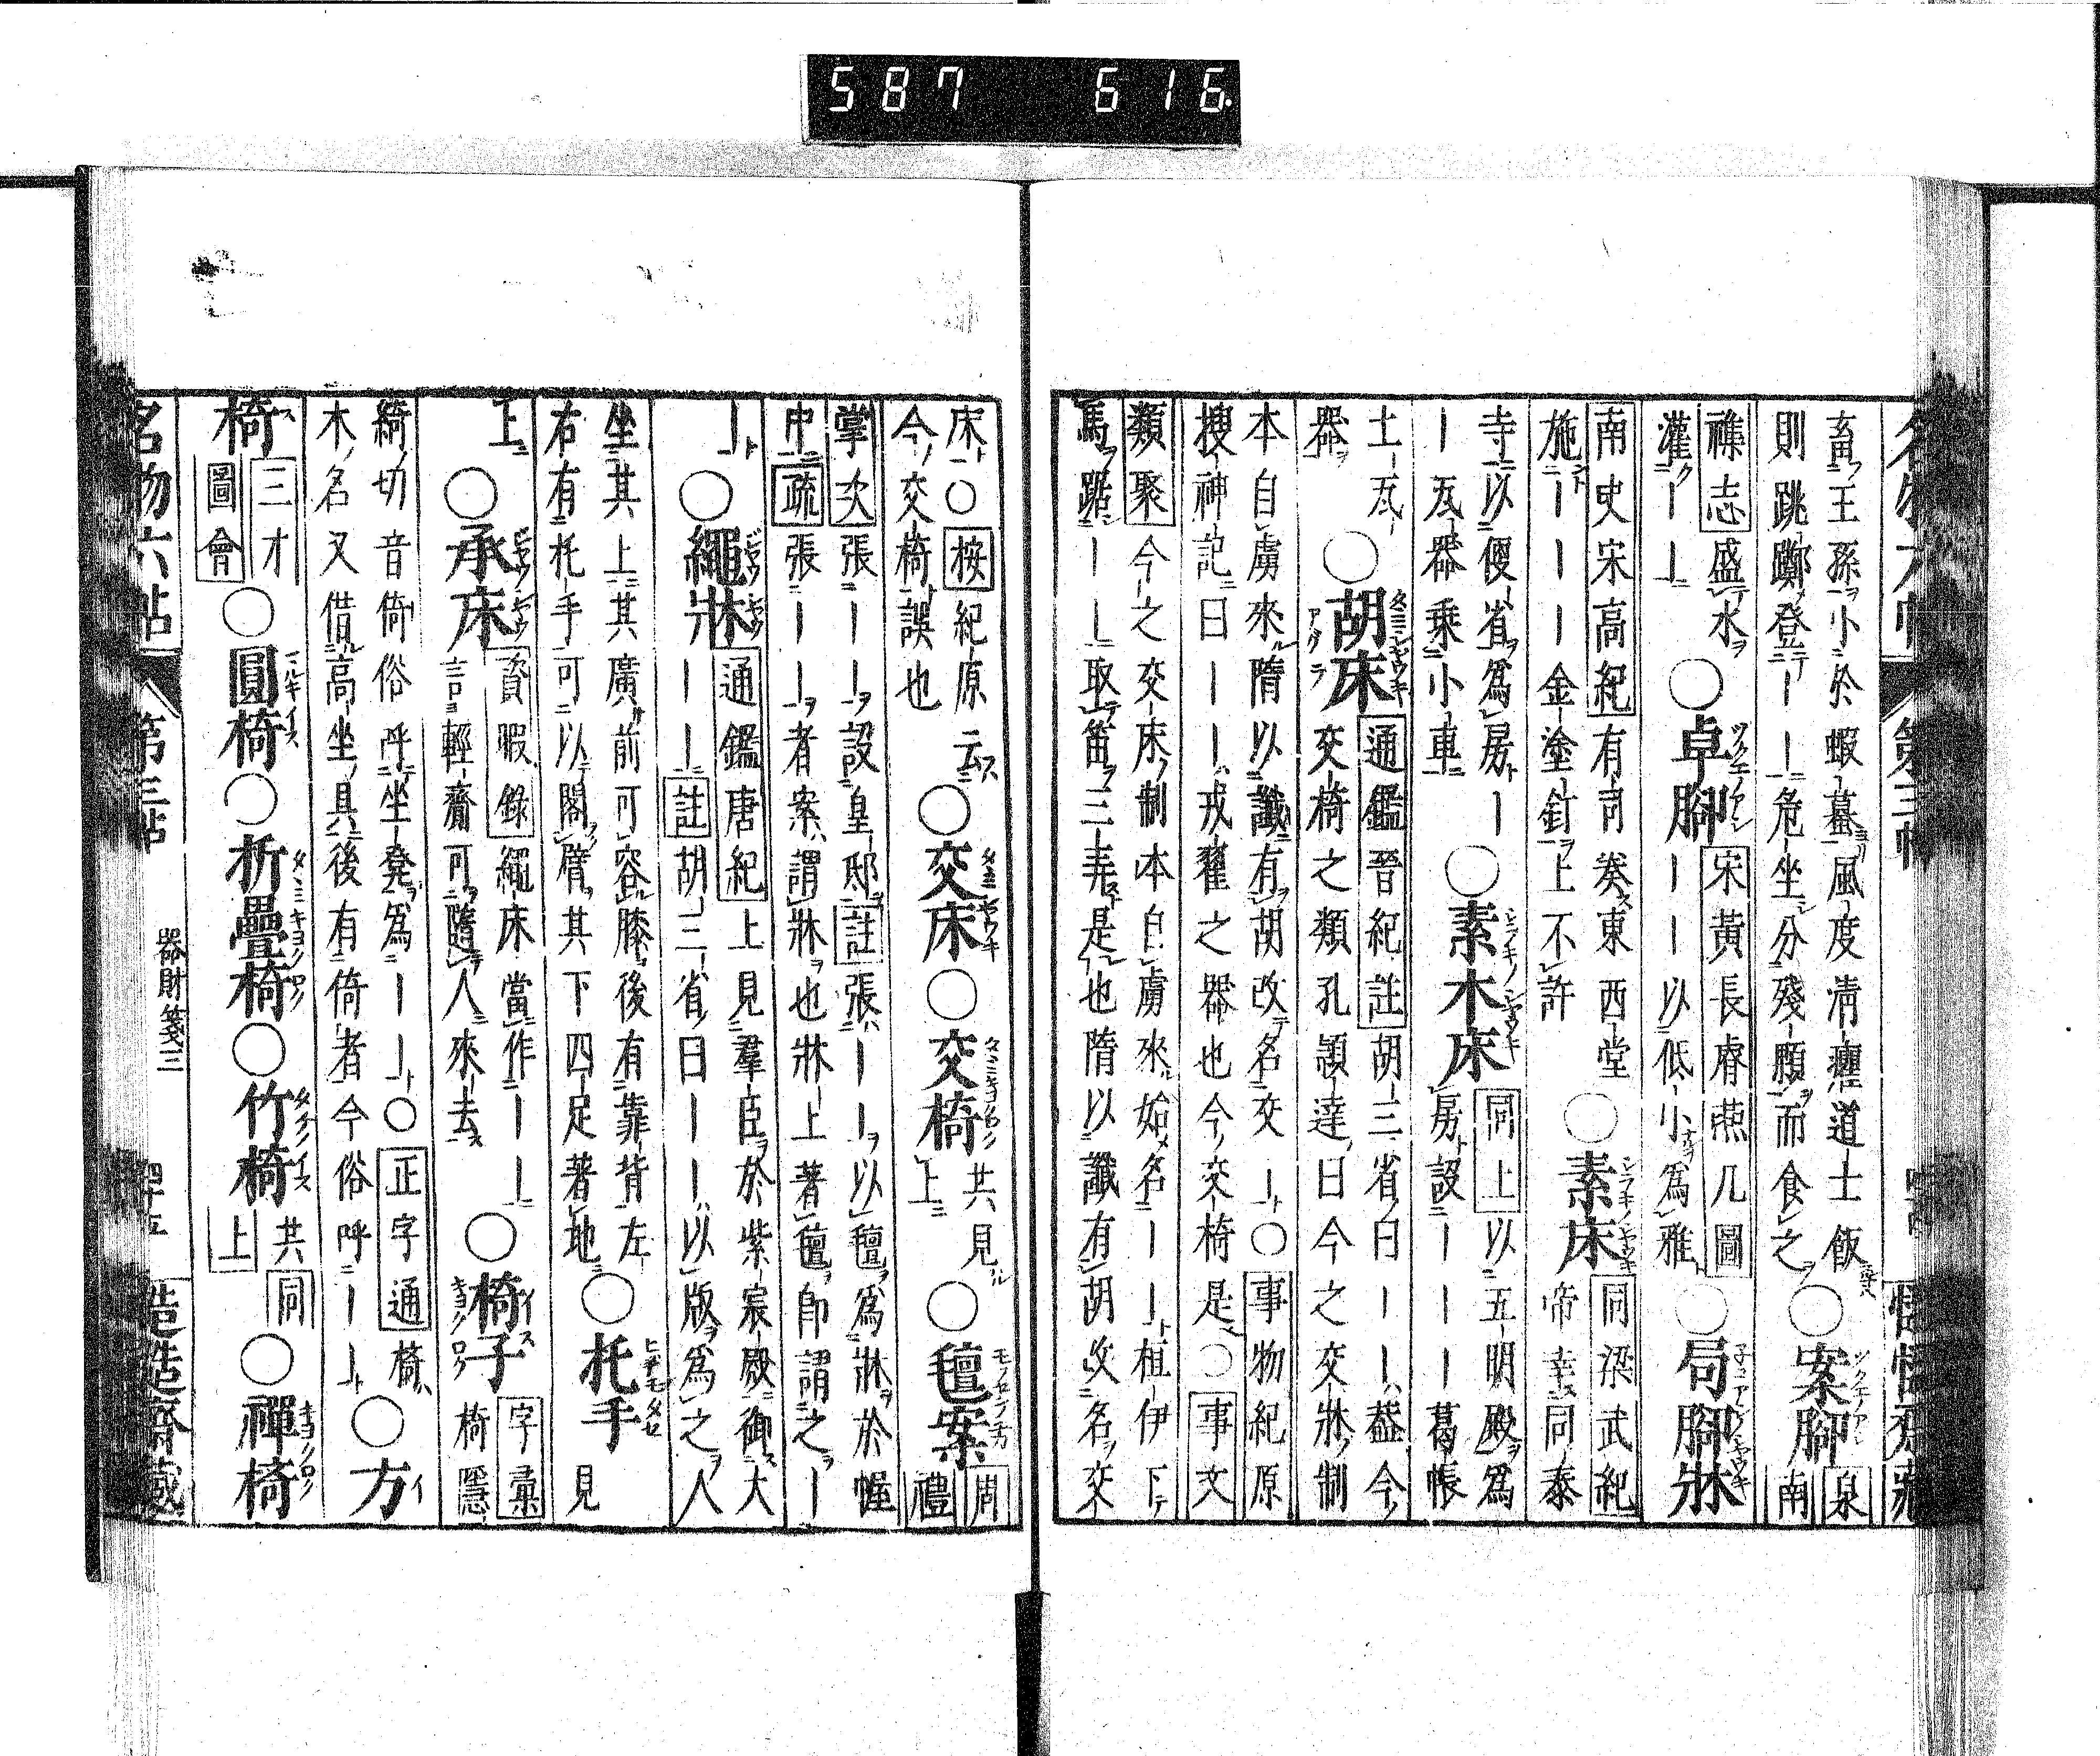 587 616.
畜王孫小於蝦蟇風度淸癯道士飯○案脚 泉南
則跳擲登二ーー危坐分殘顋而食之
襍志 盛水○卓脚 宋黃長睿燕几圖
灌ーー ーー以低小爲雅○局脚牀
南史宋高紀 有司奏東西堂 ○素床 同梁武紀
施ーーーー金塗釘上不許 帝幸同泰
寺以便省爲房ー○素木床 同上 以五明殿爲
ー瓦器乗小車 房設ーーー葛帳
土瓦 ○胡床 通鑑晋紀註 胡三省曰ーー蓋今
器 交椅之類孔頴達曰今之交牀制
本自虜來隋以讖有胡改名交ー○事物紀原
搜神記曰ーー戎翟之器也今交椅是○事文
類聚 今之交床制本自虜來始名ーー植伊下
馬踞ーー取笛三弄是也隋以讖有胡改名交
床○按紀原云○交床○交椅 共見上 ○氊案 周禮
今交椅誤也
掌次 張ーー設皇邸 註 張ーー以氊爲牀於幄
中 疏 張ーー者案謂牀也牀上著氊卽謂之ー
ー○繩牀 通鑑唐紀 上見羣臣於紫宸殿御大
ーー 註 胡三省曰ーー以版爲之人
坐其上其廣前可容膝後有靠背左○托手 見
右有托手可以閣臂其下四足著地
上○承床 資暇錄 繩床當作ーー○椅子 字彙
言輕齎可隨人來去 椅隱
綺切音倚俗呼坐凳爲ーー○正字通 椅○方
木名又借高坐具後有倚者今俗呼ーー
椅 三才圖會 ○圓椅○折疊椅○竹椅 共同上 ○禪椅
名物六帖 第三帖 器財箋三 四十五